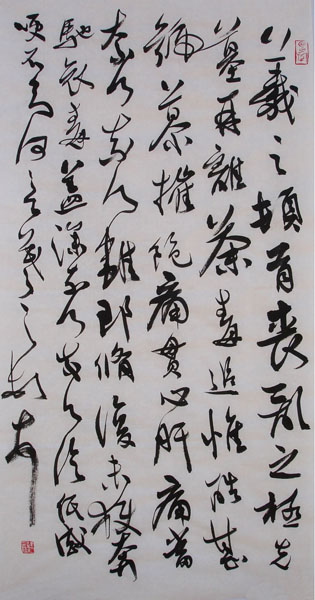 羲之頓首喪亂之極先
墓再離荼毒追惟酷甚
號慕摧絕痛貫心肝痛當
奈何奈何雖即脩復未獲奔
馳哀毒益深奈何奈何臨紙感
哽不知何言羲之頓首